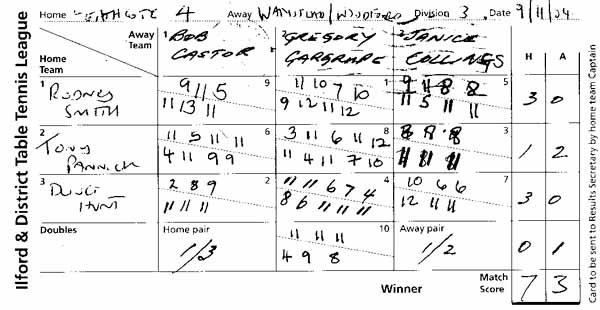 Home 4 Away WANSTEAD/WOODFORD Division 3 Date 9/11/04
Ilford & District Table Tennis League
Away Team
Home Team
1 BOB CASTOR
2 GREGORY GARGRAPE
3 JANICE COLLINGS
H A
1 RODNEY SMITH
9 11 5
11 13 11
9
11 10 7 10
9 12 11 12
1
9 11 8 8
11 5 11 11
5
3 0
2 TONY PANNICK
11 5 11 11
4 11 9 9
6
3 11 6 11 12
11 4 11 7 10
8
8 8 8
11 11 11
3
1 2
3 HUNT
2 8 9
11 11 11
2
11 11 6 7 4
8 6 11 11 11
4
10 6 6
12 11 11
7
3 0
Doubles
Home pair
1/3
10
11 11 11
4 9 8
Away pair
1/2
0 1
Winner
Match Score
7 3
Card to be sent to Results Secretary by home team Captain